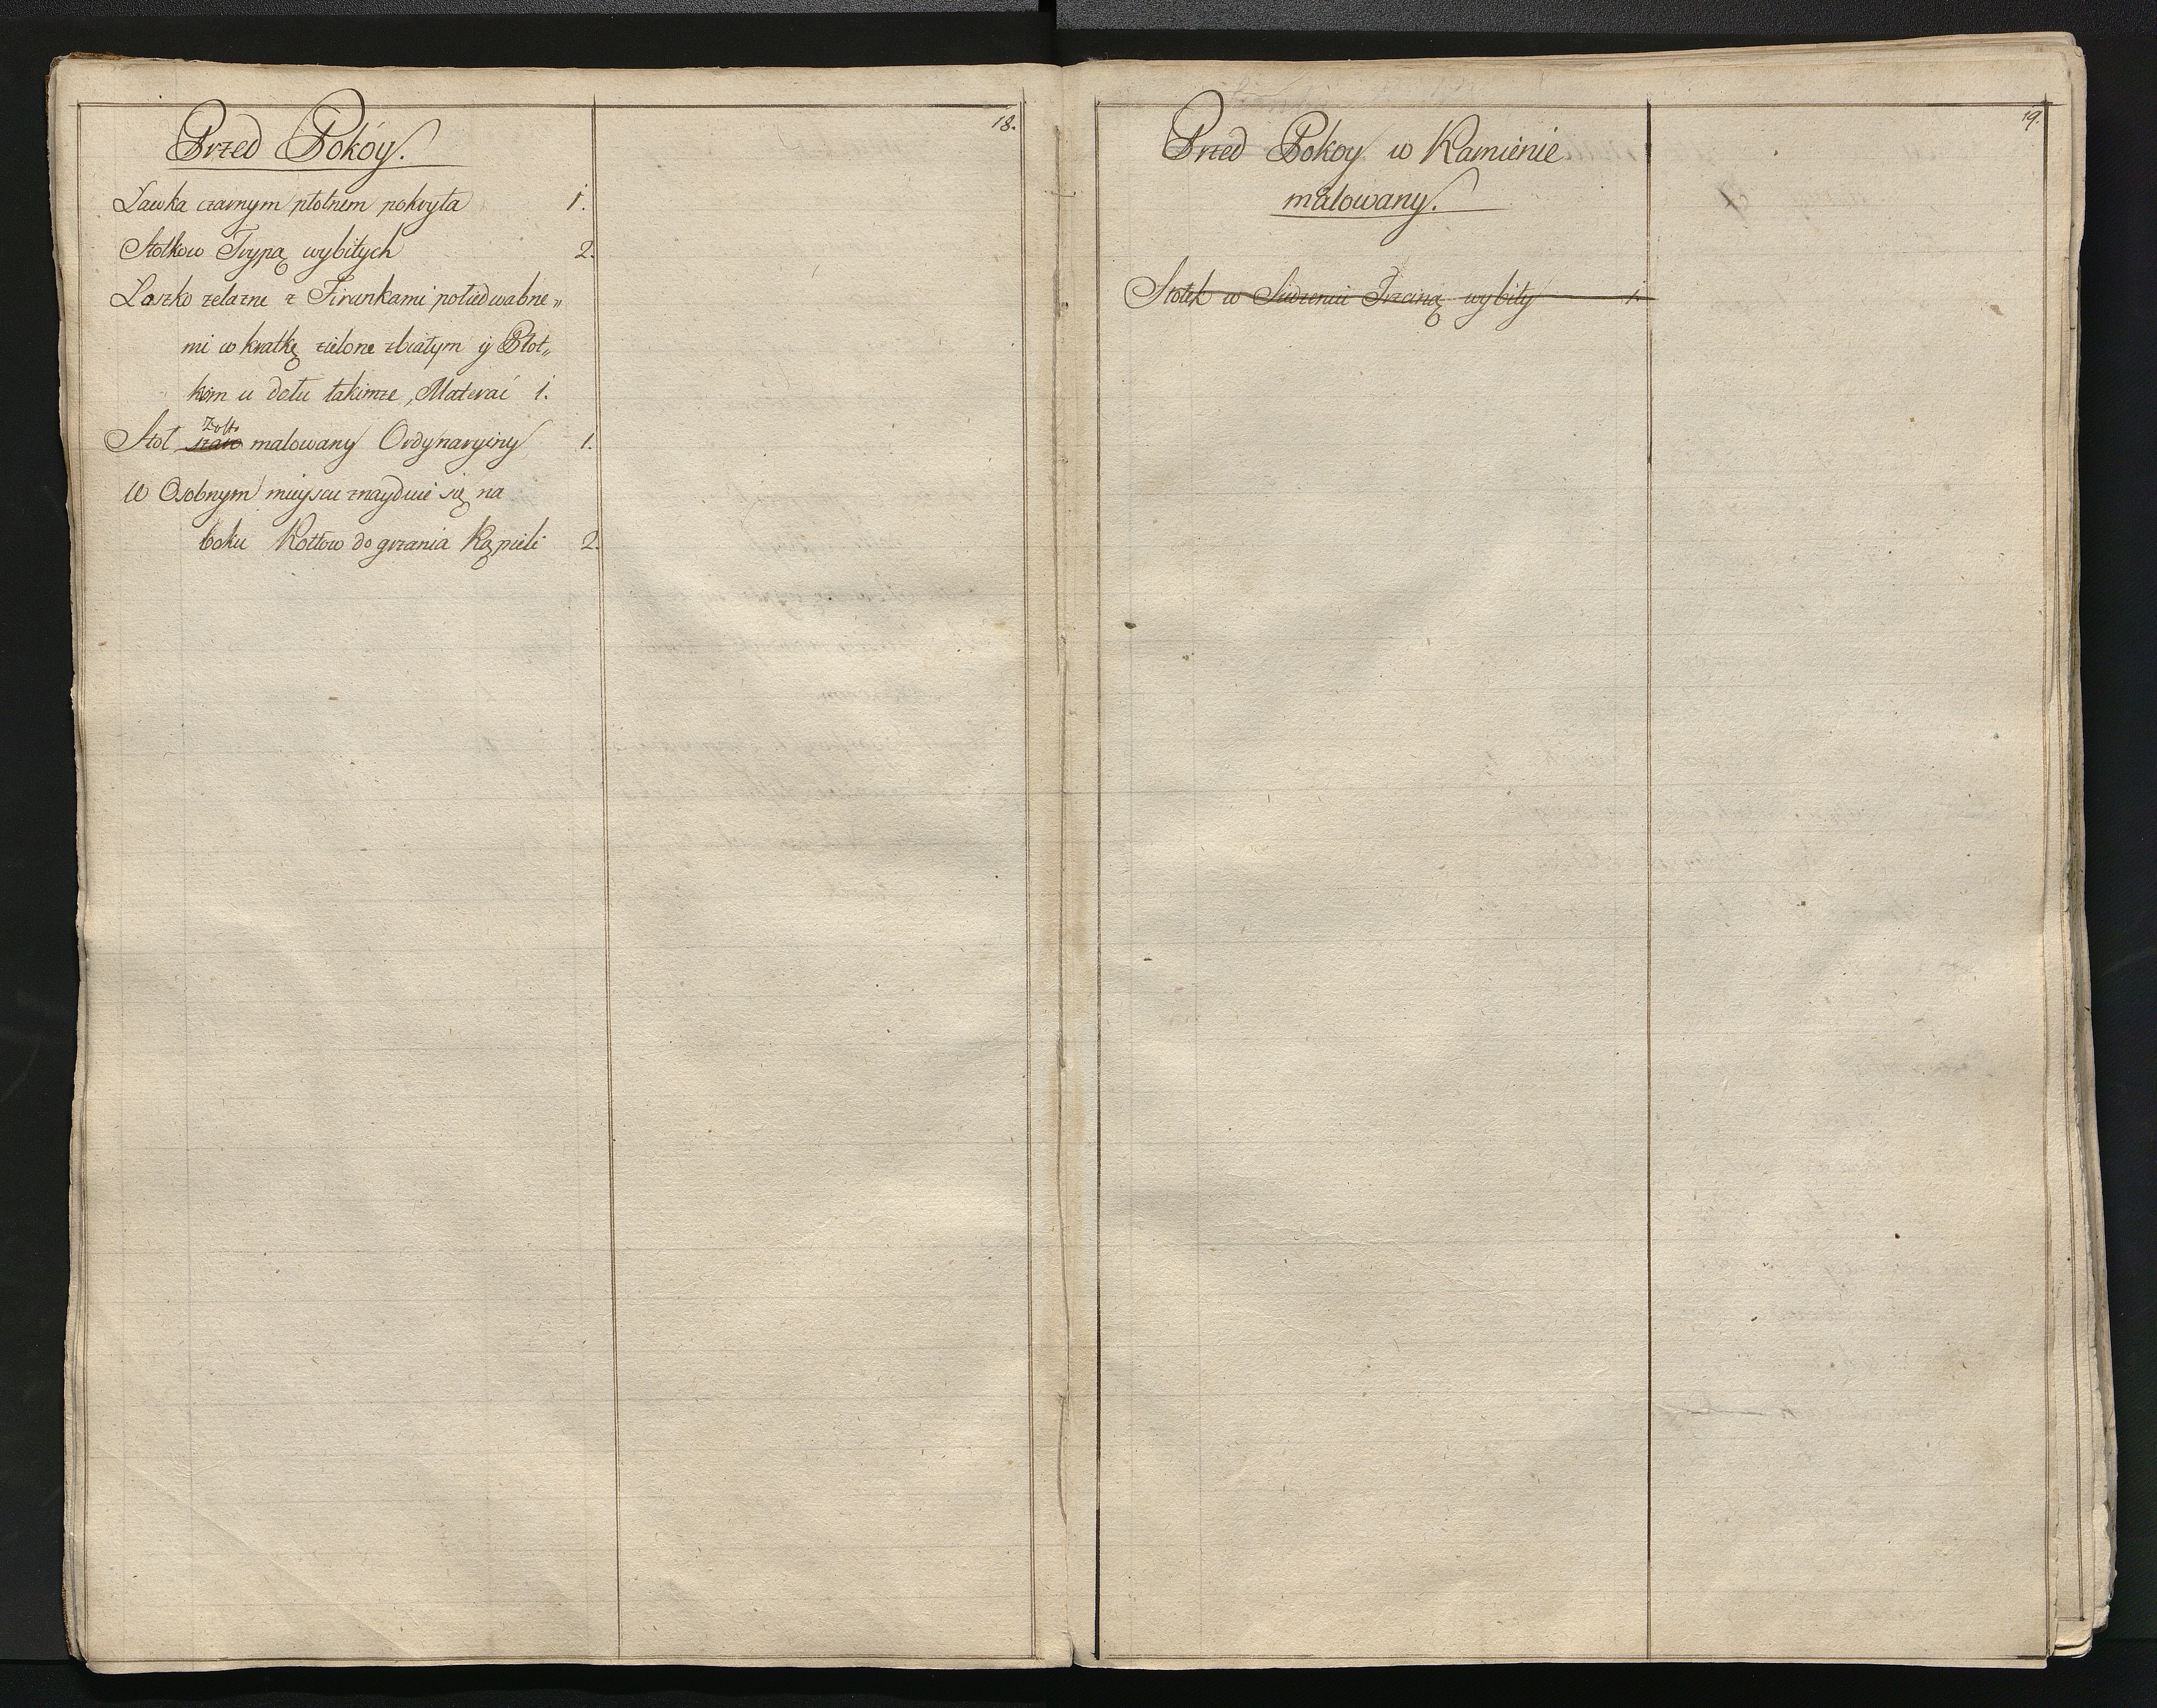 18.
Przed Pokóy.
Ławka czarnym płotnem pokryta 1.
Stołkow Trypą wybitych 2.
Loszko zelazne z Firankami połiedwabne„
mi w kratkę zielone z białym ÿ Płot„
kim u dołu takimze, Materac 1.
Zołto
Stoł szaro malowany Ordynaryiny 1.
W Osobnym mieyscu znayduie się na
boku Kotłow do grzania Kąpieli 2.
19.
Przed Pokoy w Kamienie
malowany.
Stołek w Siedzeniu Trzciną wybity 1.